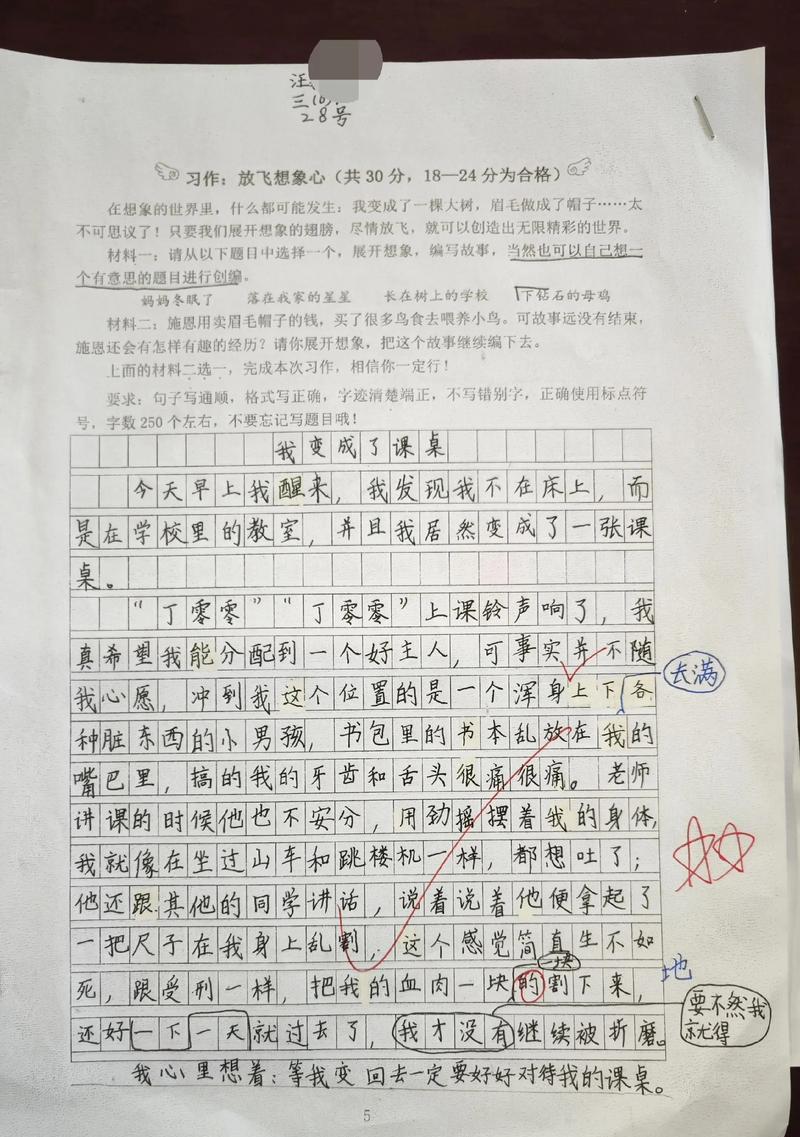 汪
三(6)
28号
习作：放飞想象心（共30分，18—24分为合格）
在想象的世界里，什么都可能发生：我变成了一棵大树，眉毛做成了帽子……太
不可思议了！只要我们展开想象的翅膀，尽情放飞，就可以创造出无限精彩的世界。
材料一：请从以下题目中选择一个，展开想象，编写故事，当然也可以自己想一
个有意思的题目进行创编。
妈妈冬眠了 落在我家的星星 长在树上的学校 下钻石的母鸡
材料二：施恩用卖眉毛帽子的钱，买了很多鸟食去喂养小鸟。可故事远没有结束，
施恩还会有怎样有趣的经历？请你展开想象，把这个故事继续编下去。
上面的材料二选一，完成本次习作，相信你一定行！
要求：句子写通顺，格式写正确，字迹清楚端正，不写错别字，正确使用标点符
号，字数250个左右，不要忘记写题目哦！
我变成了课桌
今天早上我醒来，我发现我不在床上，而
是在学校里的教室，并且我居然变成了一张课
桌。
“丁零零”“丁零零”上课铃声响了，我
真希望我能分配到一个好主人，可事实并不随
我心愿，冲到我这个位置的是一个浑身上下各
去满
种脏东西的小男孩，书包里的书本乱放在我的
嘴巴里，搞的我的牙齿和舌头很痛很痛。老师
讲课的时候他也不安分，用劲摇摆着我的身体，
我就像在坐过山车和跳楼机一样，都想吐了；
他还跟其他的同学讲话，说着说着他便拿起了
一把尺子在我身上乱割，这个感觉简直生不如
一块
死，跟受刑一样，把我的血肉一块的割下来，
地
还好一下一天就过去了，我才没有继续被折磨。
要不然我
就得
我心里想着：等我变回去一定要好好对待我的课桌。
5